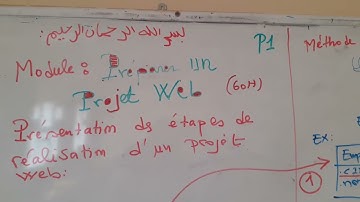 بسم الله الرحمان الرحيم:
P1
Module: Préparer UN
Projet Web (60H)
Présentation ds étapes de
réalisation d'un projet
web:
Méthode
EX:
Emp
1